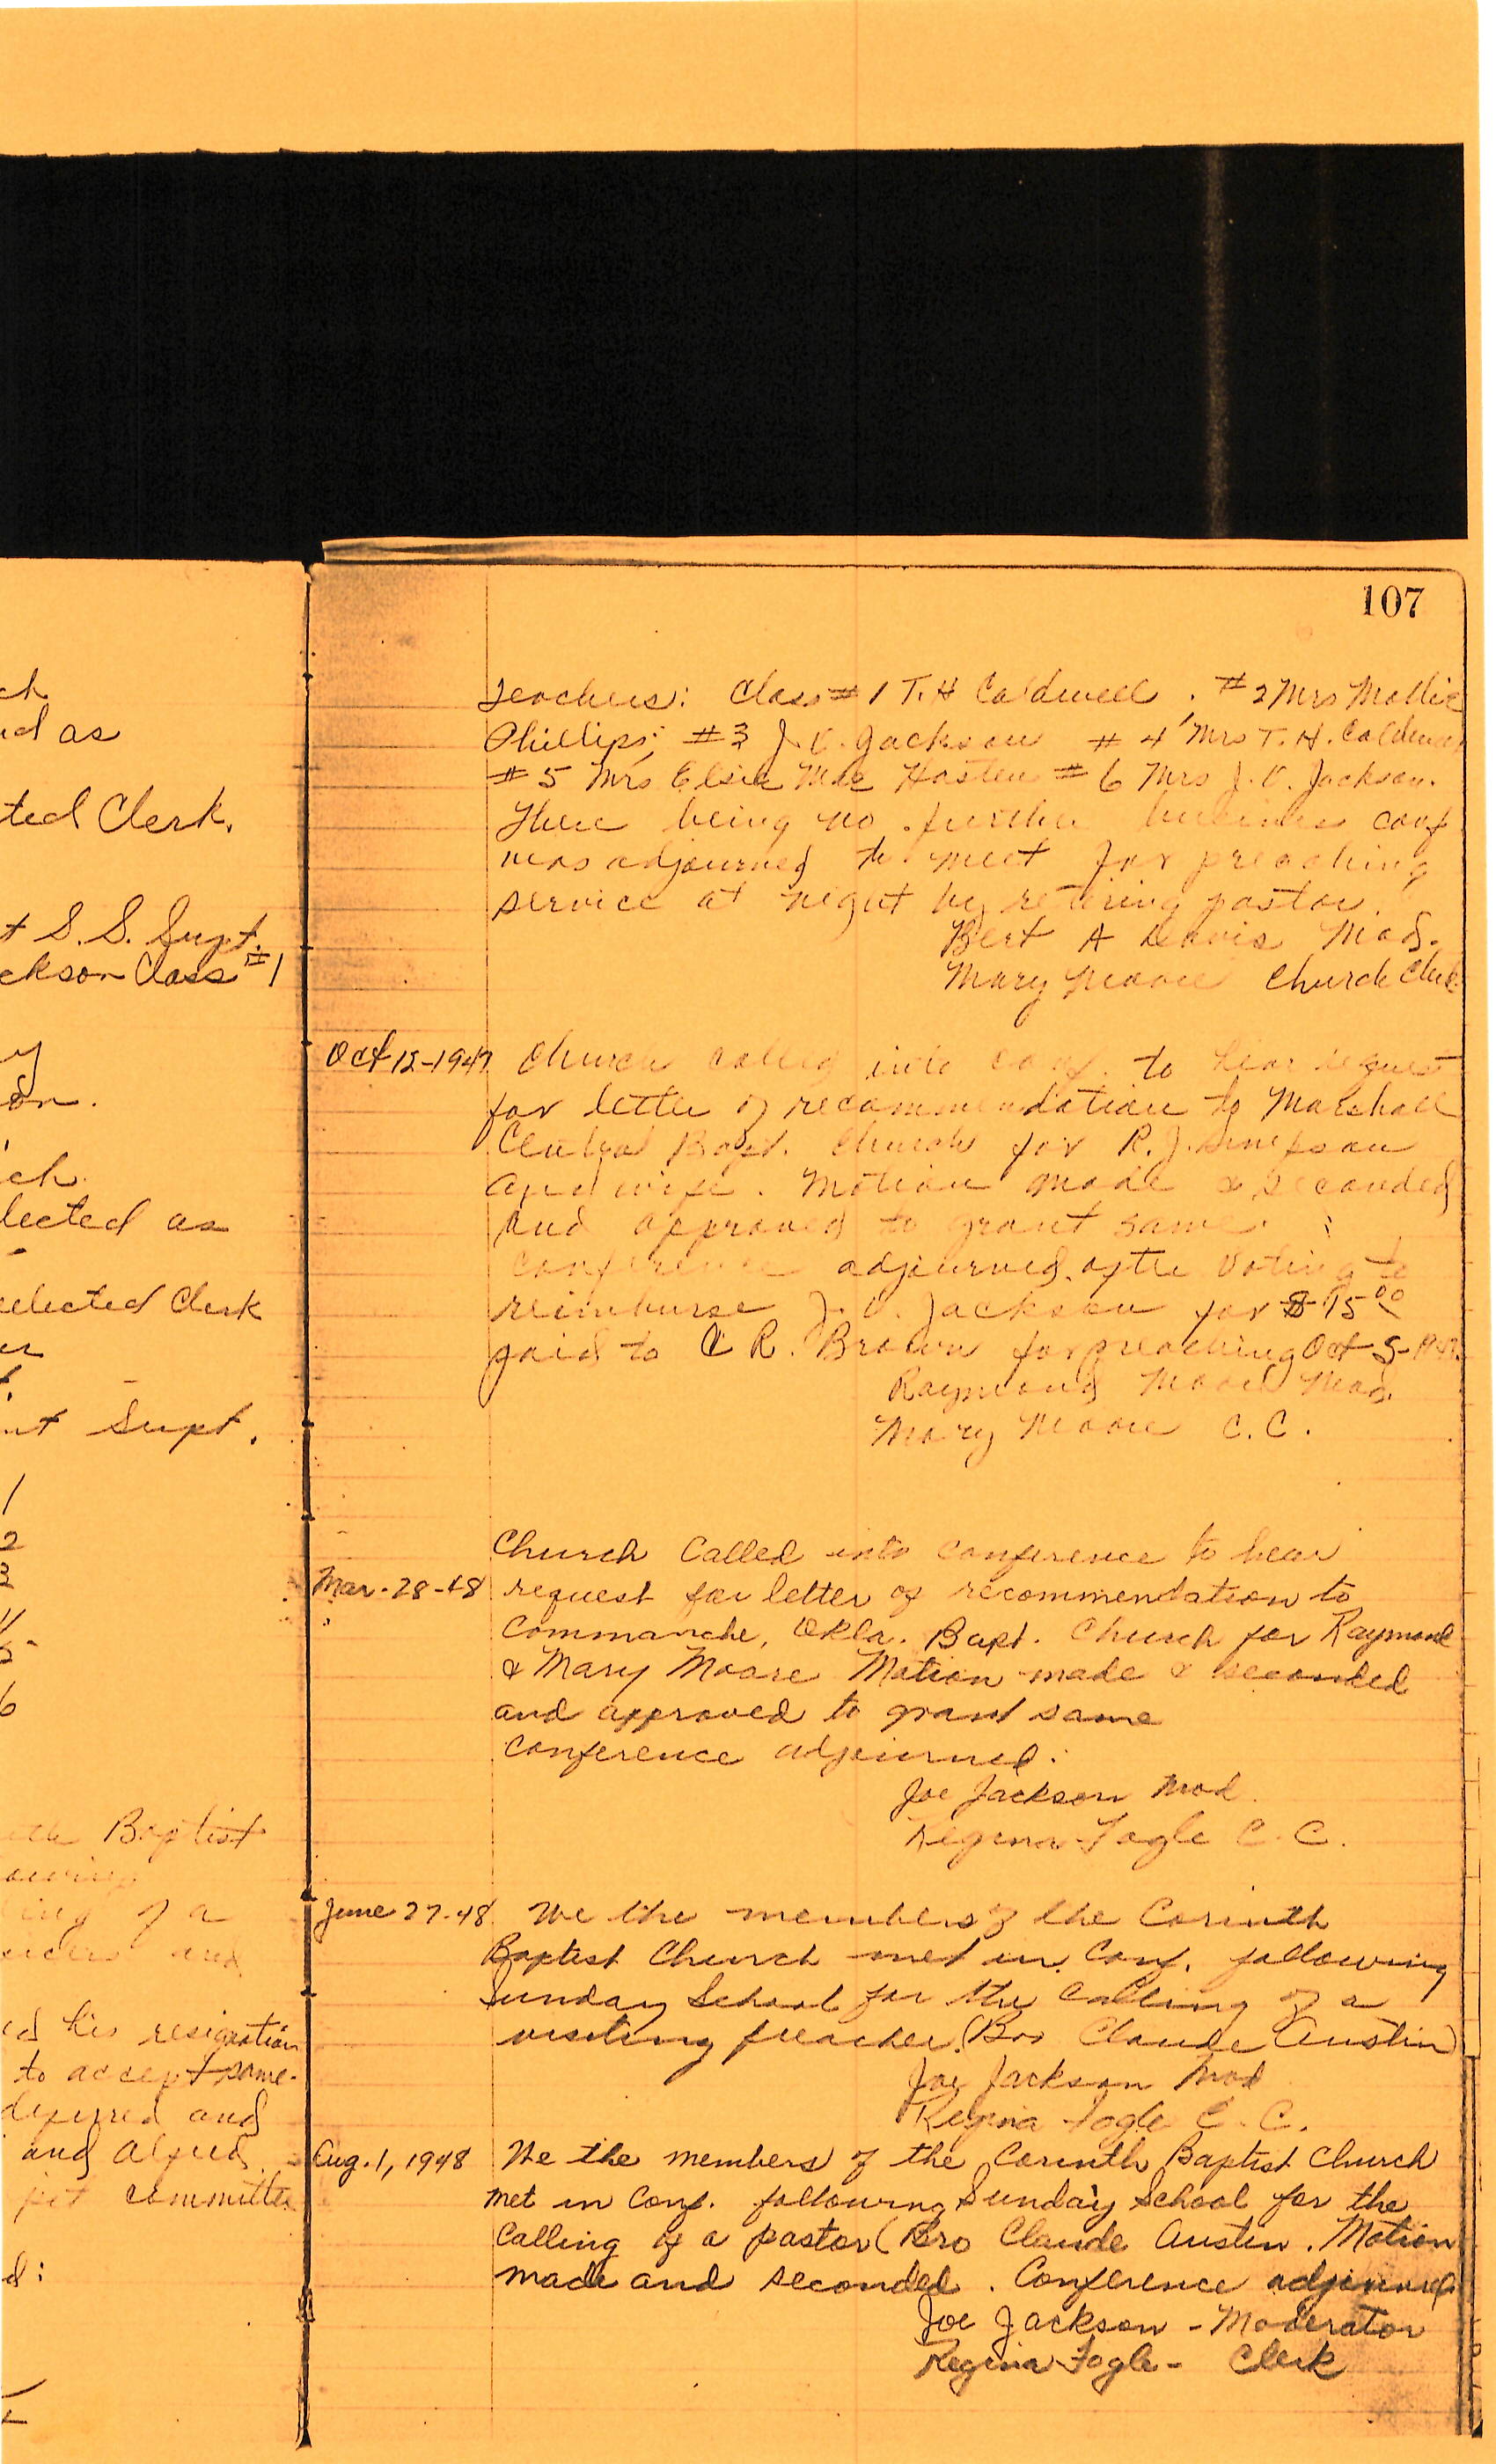 ch
nd as
ted Clerk.
t S. S. Supt.
ckson Class #1
y
on.
ch.
lected as
elected Clerk
er
nt Supt.
1
2
3
4
5
6
Baptist
owing
ing of a
and
ed his resignation
to accept same.
deferred and
and Alfred
pit committee
d:
107
Teachers: Class #1 T. H Caldwell, #2 Mrs Mollie
Phillips; #3 J. V. Jackson #4 Mrs T. H. Caldwell
#5 Mrs Elsie Mae Hasten #6 Mrs J. V. Jackson.
There being no further business conf
was adjourned to meet for preaching
service at night by retiring pastor.
Bert A Davis Mod.
Mary Moore Church Clerk
Oct 12-1947 Church called into conf. to hear request
for letter of recommendation to Marshall
Central Bapt. Church for R. J. Simpson
and wife. Motion made & seconded
and approved to grant same.
Conference adjourned after voting to
reimburse J. V. Jackson for $15.00
paid to C R. Brown for preaching Oct 5-1947.
Raymond Moore Mod.
Mary Moore C. C.
Church Called into conference to hear
Mar-28-48 request for letter of recommendation to
Commanche, Okla. Bapt. Church for Raymond
& Mary Moore Motion made & seconded
and approved to grant same
Conference adjourned.
Joe Jackson Mod.
Regina Fogle C. C.
June 27-48 We the members of the Corinth
Baptist Church met in Conf. following
Sunday School for the calling of a
visiting preacher. (Bro Claude Austin)
Joe Jackson Mod
Regina Fogle C. C.
Aug. 1, 1948 We the members of the Corinth Baptist Church
met in Conf. following Sunday School for the
Calling of a pastor (Bro Claude Austin. Motion
made and seconded. Conference adjourned
Joe Jackson - Moderator
Regina Fogle - Clerk